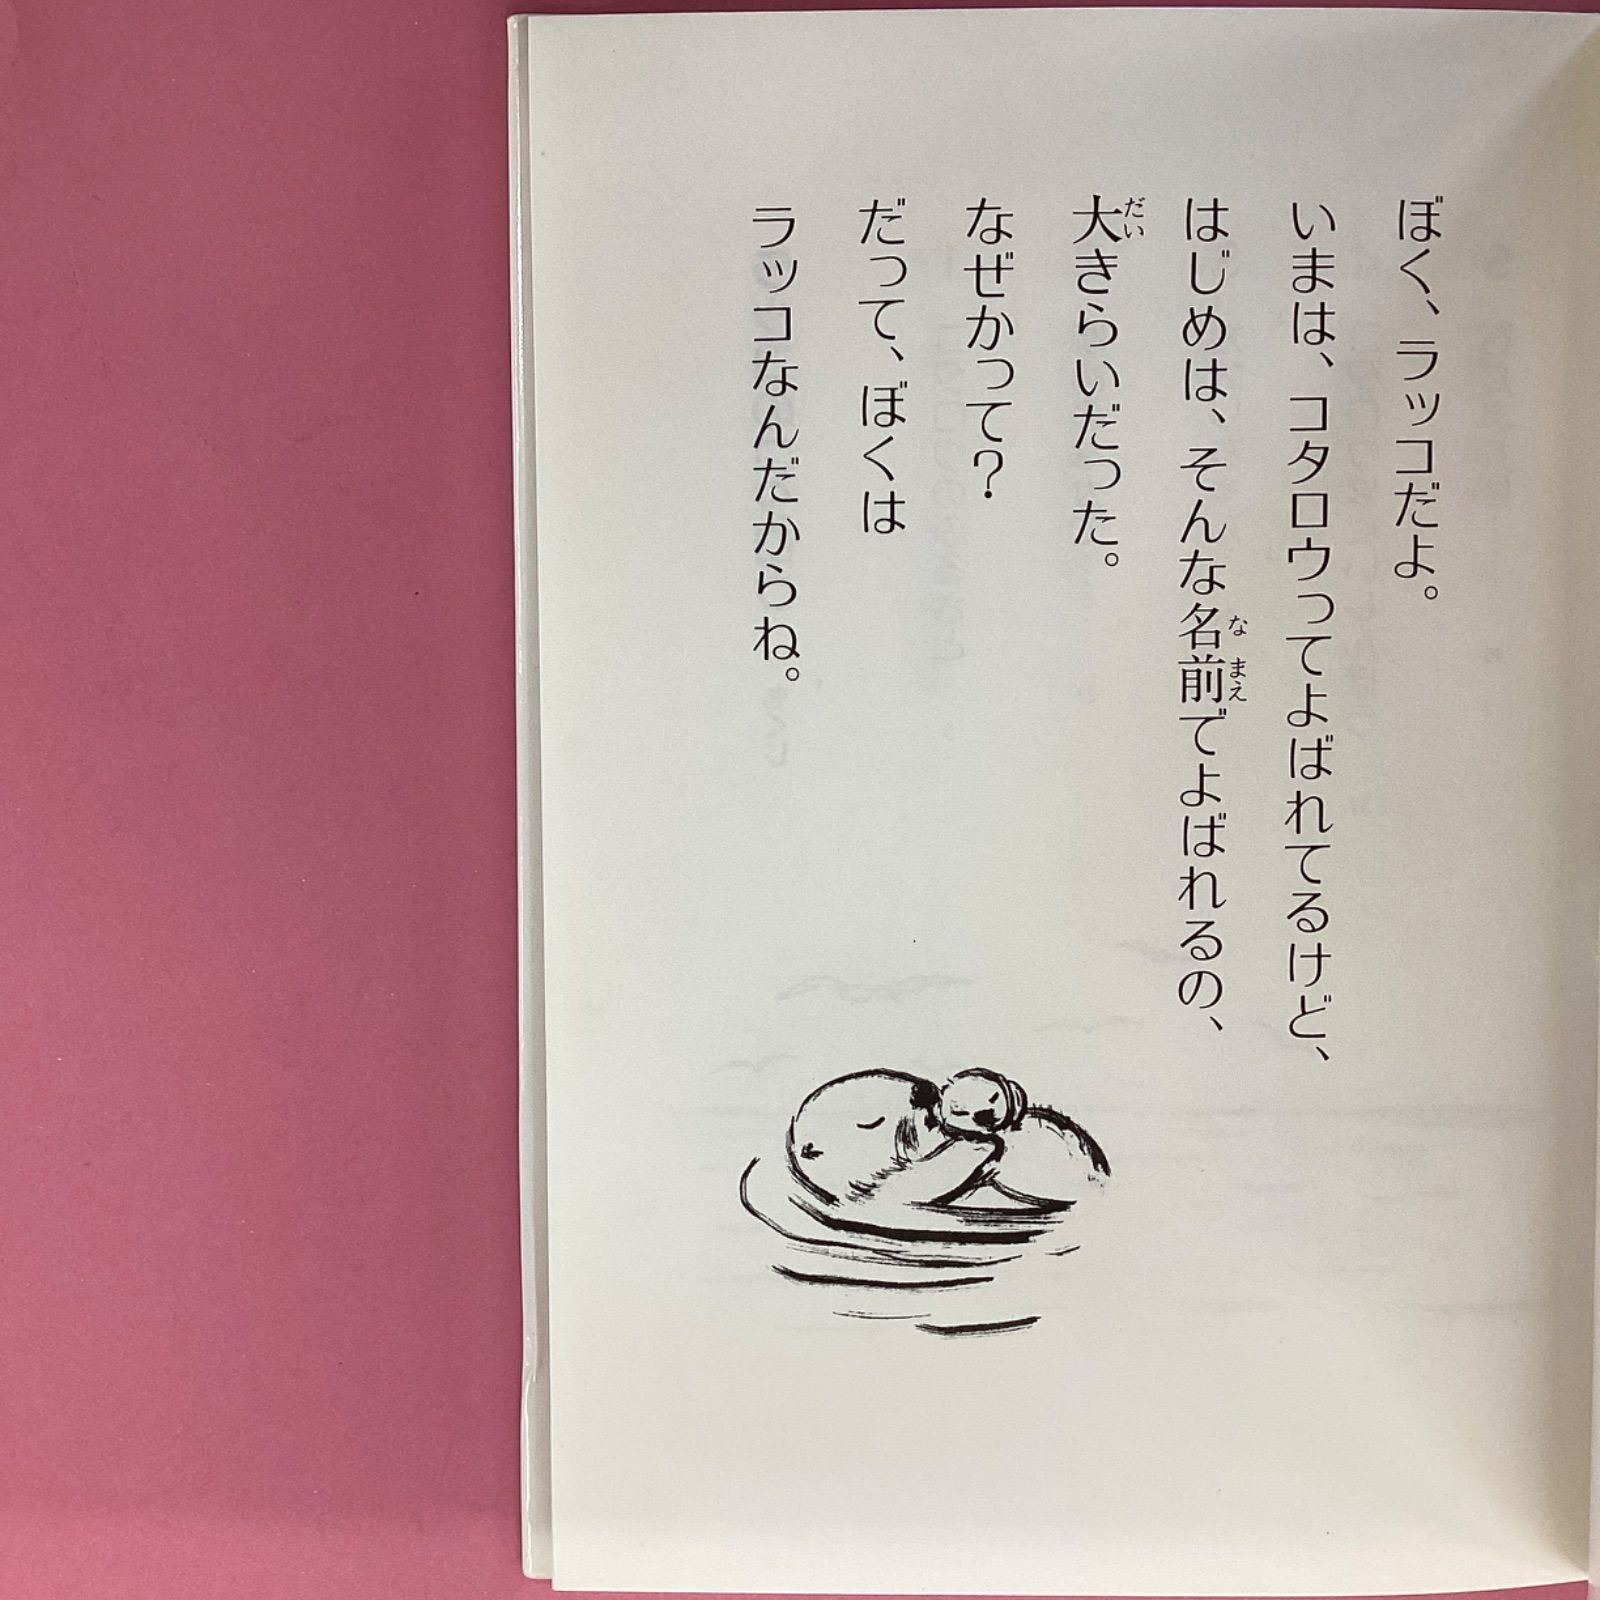 ぼく、ラッコだよ。
いまは、コタロウってよばれてるけど、
はじめは、そんな名前でよばれるの、
大きらいだった。
なぜかって?
だって、ぼくは
ラッコなんだからね。